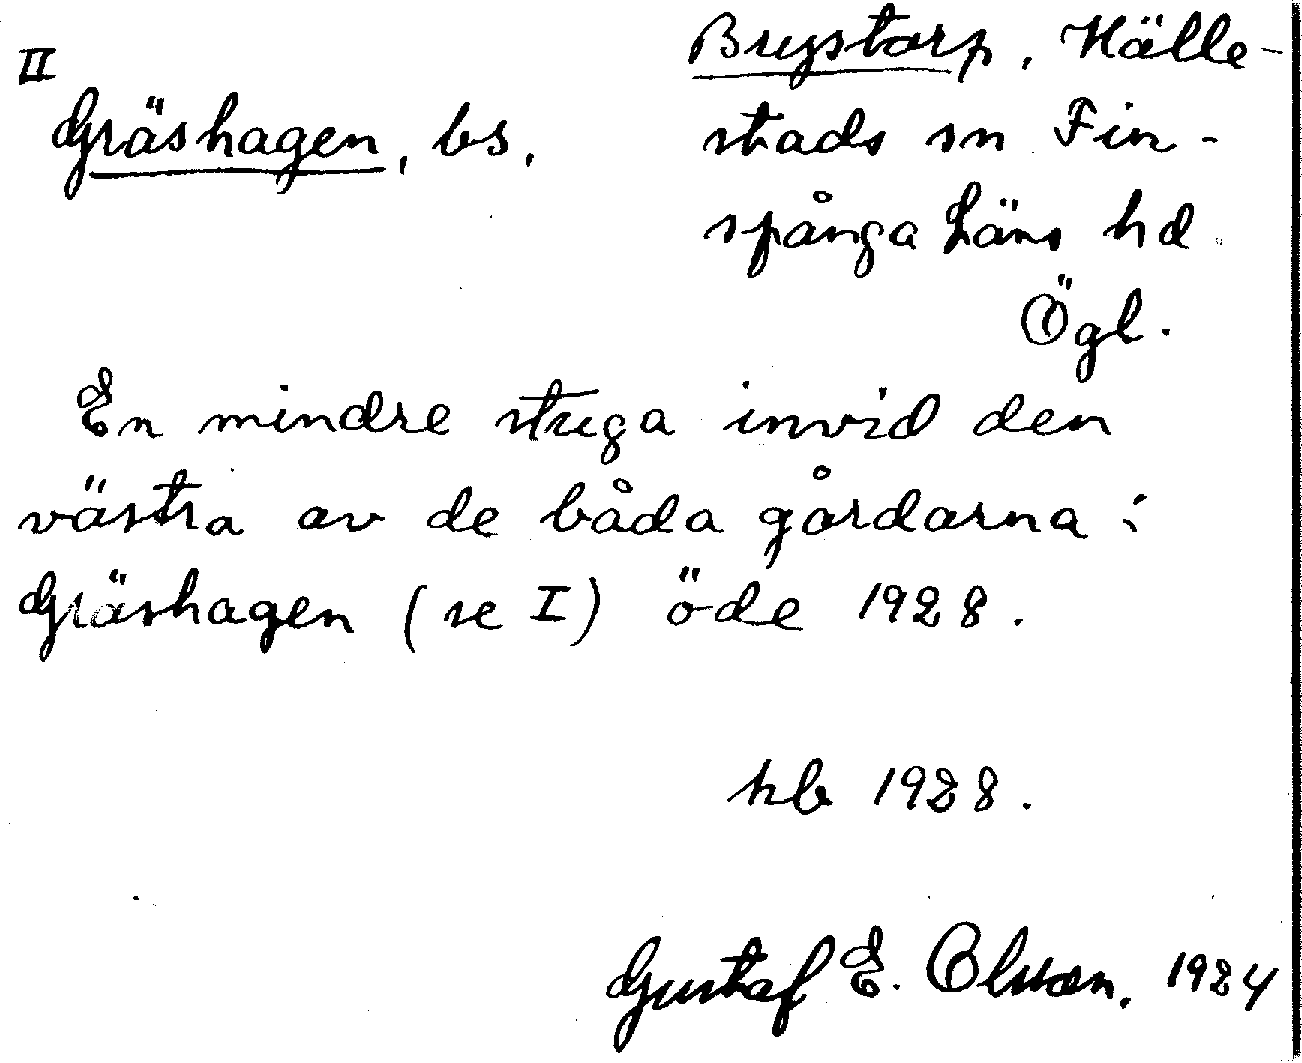 II
Gräshagen, bs.
Brystorp, Hälle-
stads sn Fin-
spånga Läns hd
Ögl.
En mindre stuga invid den
västra av de båda gårdarna i
Gräshagen (se I) öde 1928.
hb 1928.
Gustaf E. Olsson, 1924